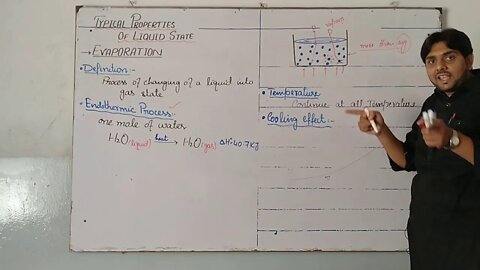 TYPICAL PROPERTIES
OF LIQUID STATE
→EVAPORATION
• Definition:-
Process of changing of a liquid into
gas state
• Endothermic Process:-
one mole of water
H₂O(liquid) heat→ H₂O(gas) ΔH=40.7KJ
• Temperature
Continue at all temperature
• Cooling effect:-